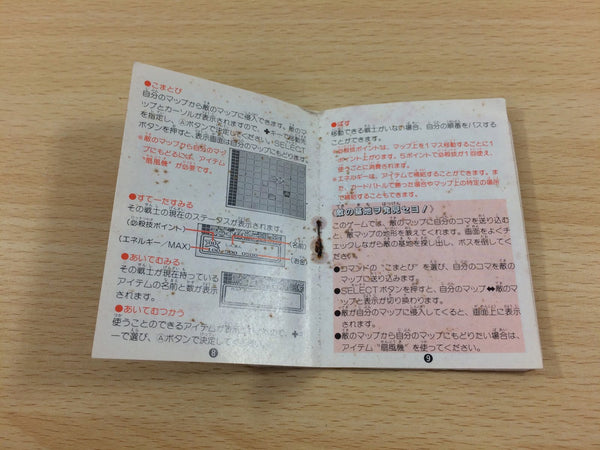 ●こまとび
自分のマップから敵のマップに侵入できます。敵のマ
ップとカーソルが表示されますので、✚キーで移動先
を指定し、Ⓐボタンで決定してください。SELECT
ボタンを押すと、表示画面は自分のマップにもどります。
※敵のマップから自分のマップ
にもどるには、アイテム
"扇風機"が必要です。
●すてーたすみる
その戦士の現在のステータスが表示されます。
(必殺技ポイント)
(名前)
(エネルギー/MAX)
(お金)
●あいてむみる
その戦士が現在持っている
アイテムの名前と数が表示
されます。
●あいてむつかう
使うことのできるアイテムが表示されますので、✚
ーで選び、Ⓐボタンで決定してください。
8
●ぱす
移動できる戦士がいない場合、自分の順番をパスする
ことができます。
※必殺技ポイントは、マップ上を1マス移動するごとに1
ポイント上がります。5ポイントで必殺技が1回使え、
使うごとに消費されます。
※エネルギーは、アイテムで補給することができます。ま
た、カードバトルで勝った場合やマップ上の特定の場所
で補給することもできます。
敵の基地を発見せよ!
このゲームでは、敵のマップに自分のコマを送り込む
と、敵マップの地形を教えてくれます。画面をよくチ
ェックしながら敵の基地を探し出し、ボスを倒してく
ださい。
●コマンドの"こまとび"を選び、自分のコマを敵のマ
ップに送り込みます。
●SELECTボタンを押すと、自分のマップ⇔敵のマッ
プと表示が切り換わります。
●敵が自分のマップに侵入してくると、画面上に表示
されます。
●敵のマップから自分のマップにもどりたい場合は、
アイテム"扇風機"を使ってください。
9